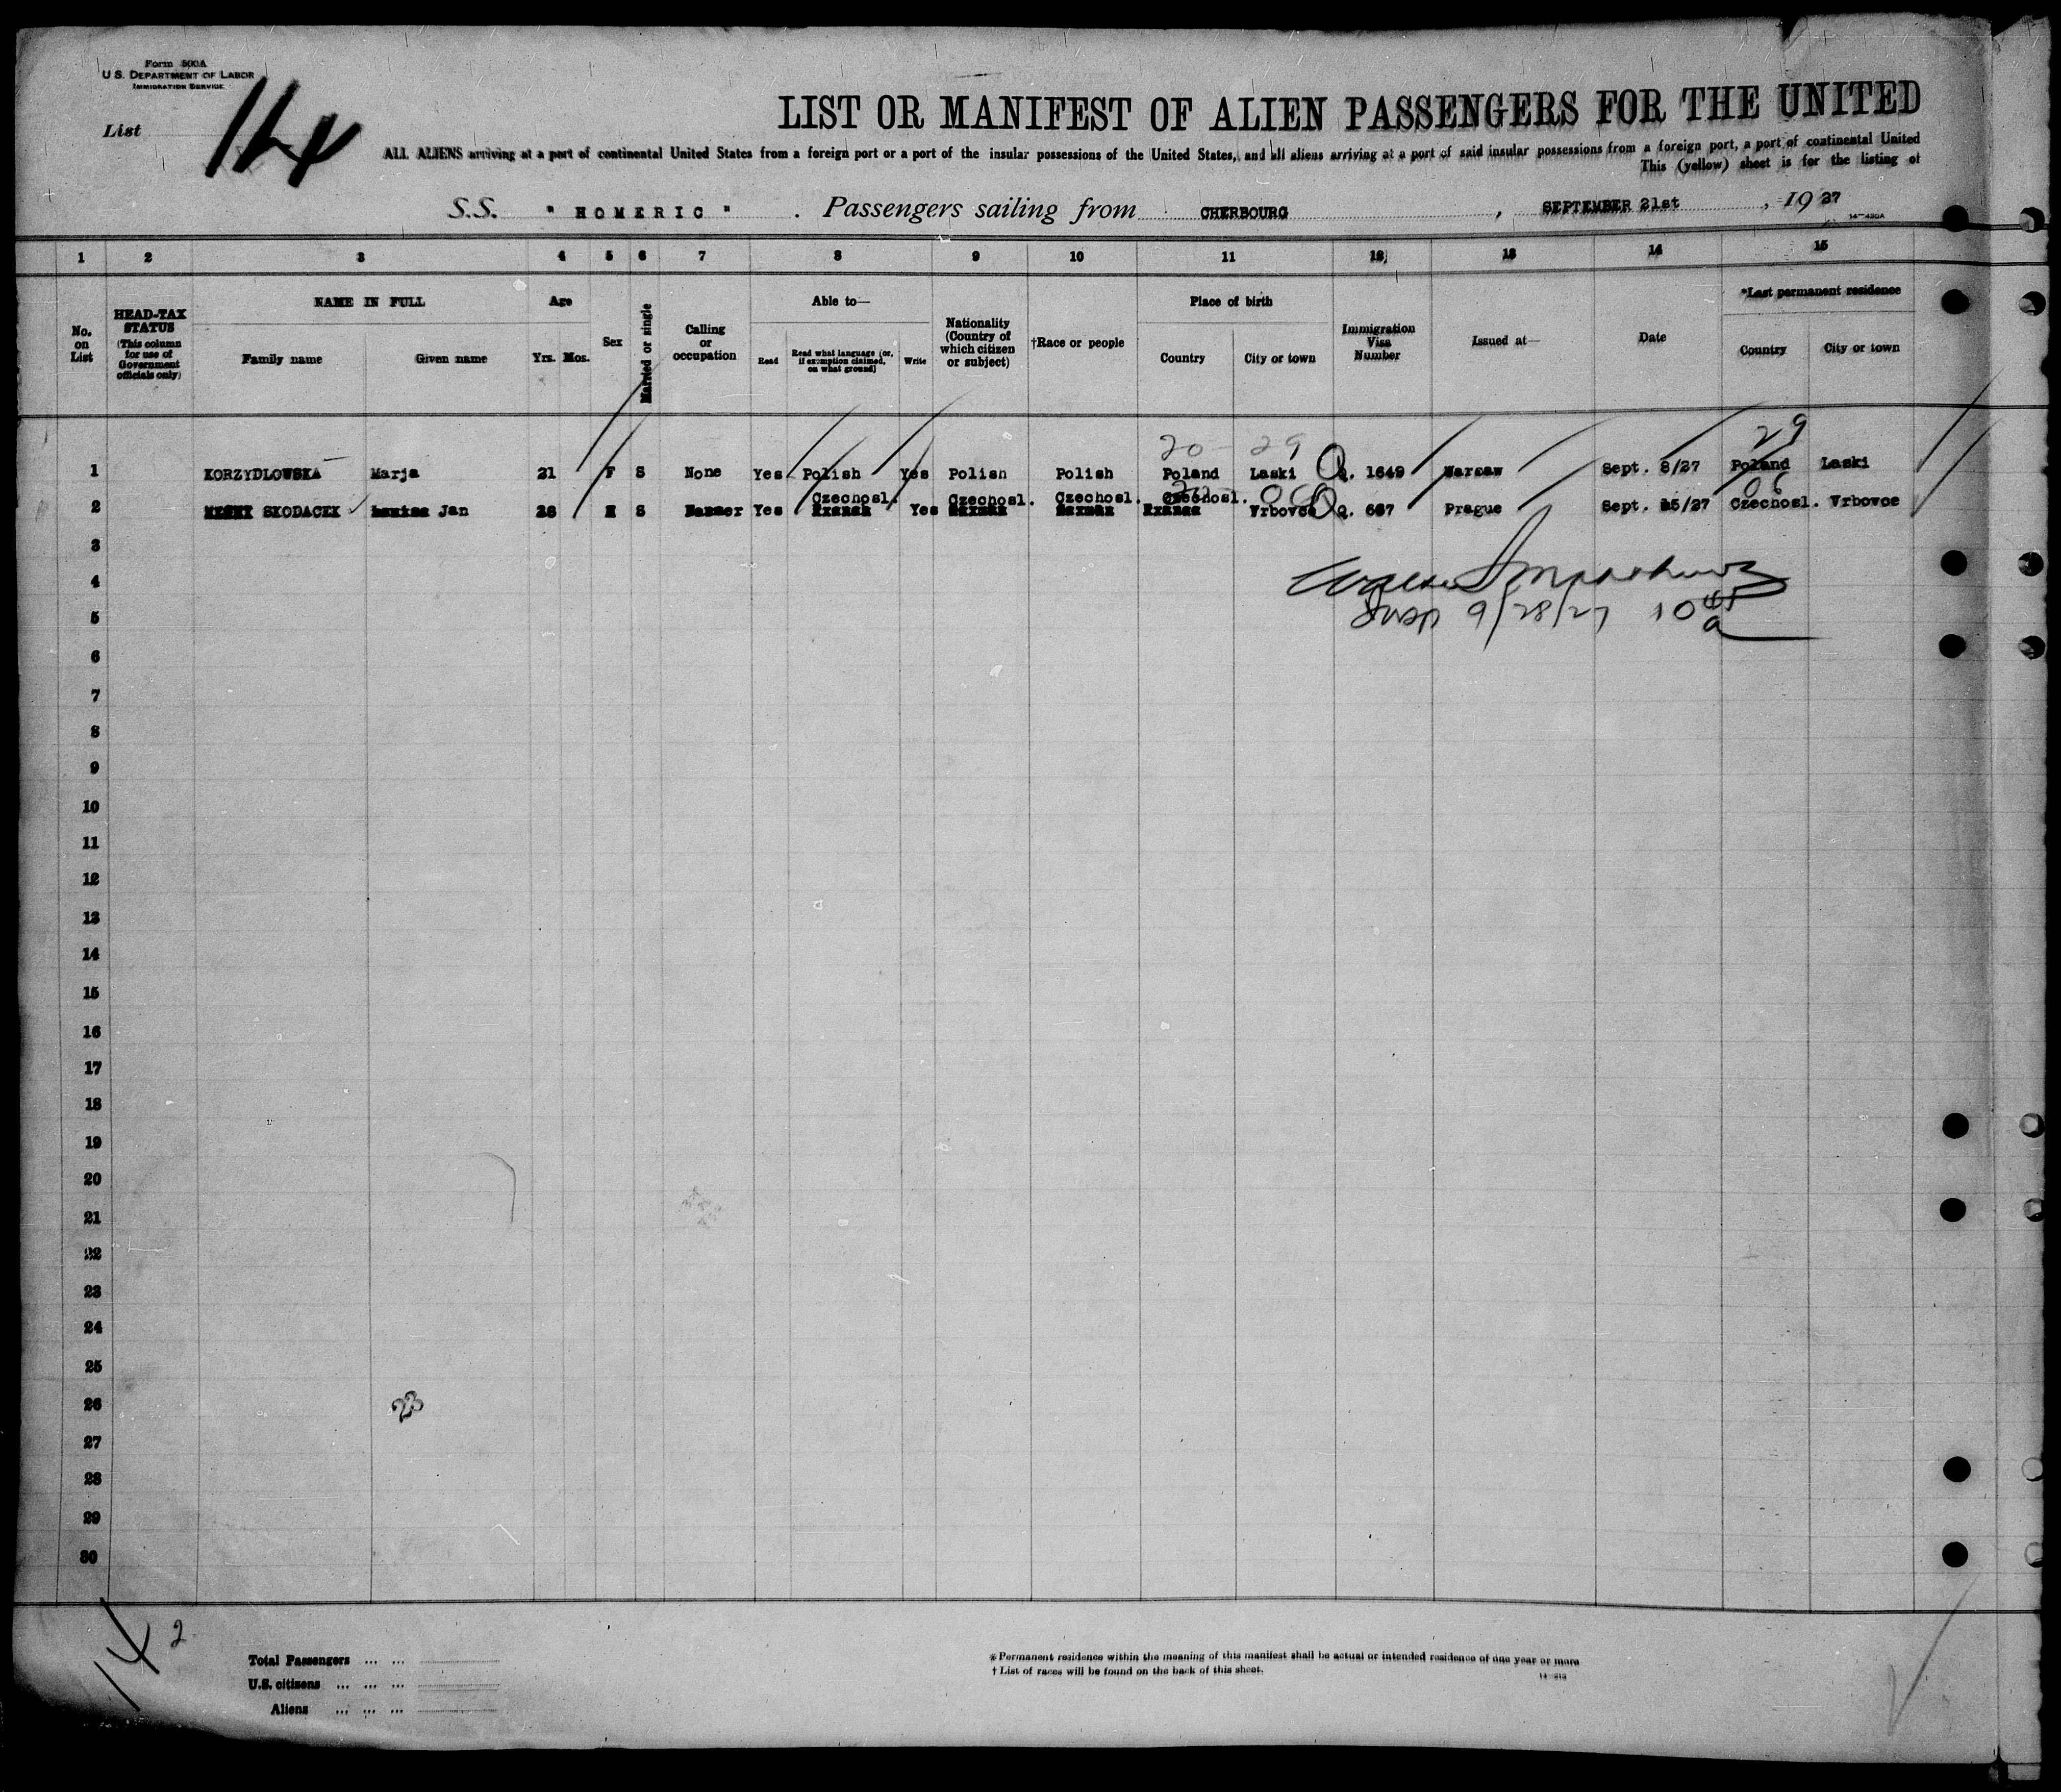 Form 500A
U.S. DEPARTMENT OF LABOR
IMMIGRATION SERVICE
List 14
LIST OR MANIFEST OF ALIEN PASSENGERS FOR THE UNITED
ALL ALIENS arriving at a port of continental United States from a foreign port or a port of the insular possessions of the United States, and all aliens arriving at a port of said insular possessions from a foreign port, a port of continental United
This (yellow) sheet is for the listing of
S.S. "HOMERIC". Passengers sailing from CHERBOURG, SEPTEMBER 21st, 1927
14—430A
1 2 3 4 5 6 7 8 9 10 11 12 13 14 15
No. on List
HEAD-TAX STATUS (This column for use of Government officials only)
NAME IN FULL
Family name Given name
Age
Yrs. Mos.
Sex
Married or single
Calling or occupation
Able to—
Read Read what language (or, if exemption claimed, on what ground) Write
Nationality (Country of which citizen or subject)
†Race or people
Place of birth
Country City or town
Immigration Visa Number
Issued at—
Date
*Last permanent residence
Country City or town
20 29 29
1 KORZYDLOWSKA Marja 21 F S None Yes Polish Yes Polish Polish Poland Laski Q. 1649 Warsaw Sept. 8/27 Poland Laski
Czechosl. Czechosl. Czechosl. Czechosl. 06 06
2 SKODACEK Jan 26 M S Yes Yes Vrbovce Q. 667 Prague Sept. 15/27 Czechosl. Vrbovce
3
4
5
9/28/27 10 45 a
6
7
8
9
10
11
12
13
14
15
16
17
18
19
20
21
22
23
24
25
26
27
28
29
30
14 2
Total Passengers ... ...
U.S. citizens ... ... ...
Aliens ... ... ...
* Permanent residence within the meaning of this manifest shall be actual or intended residence of one year or more
† List of races will be found on the back of this sheet.